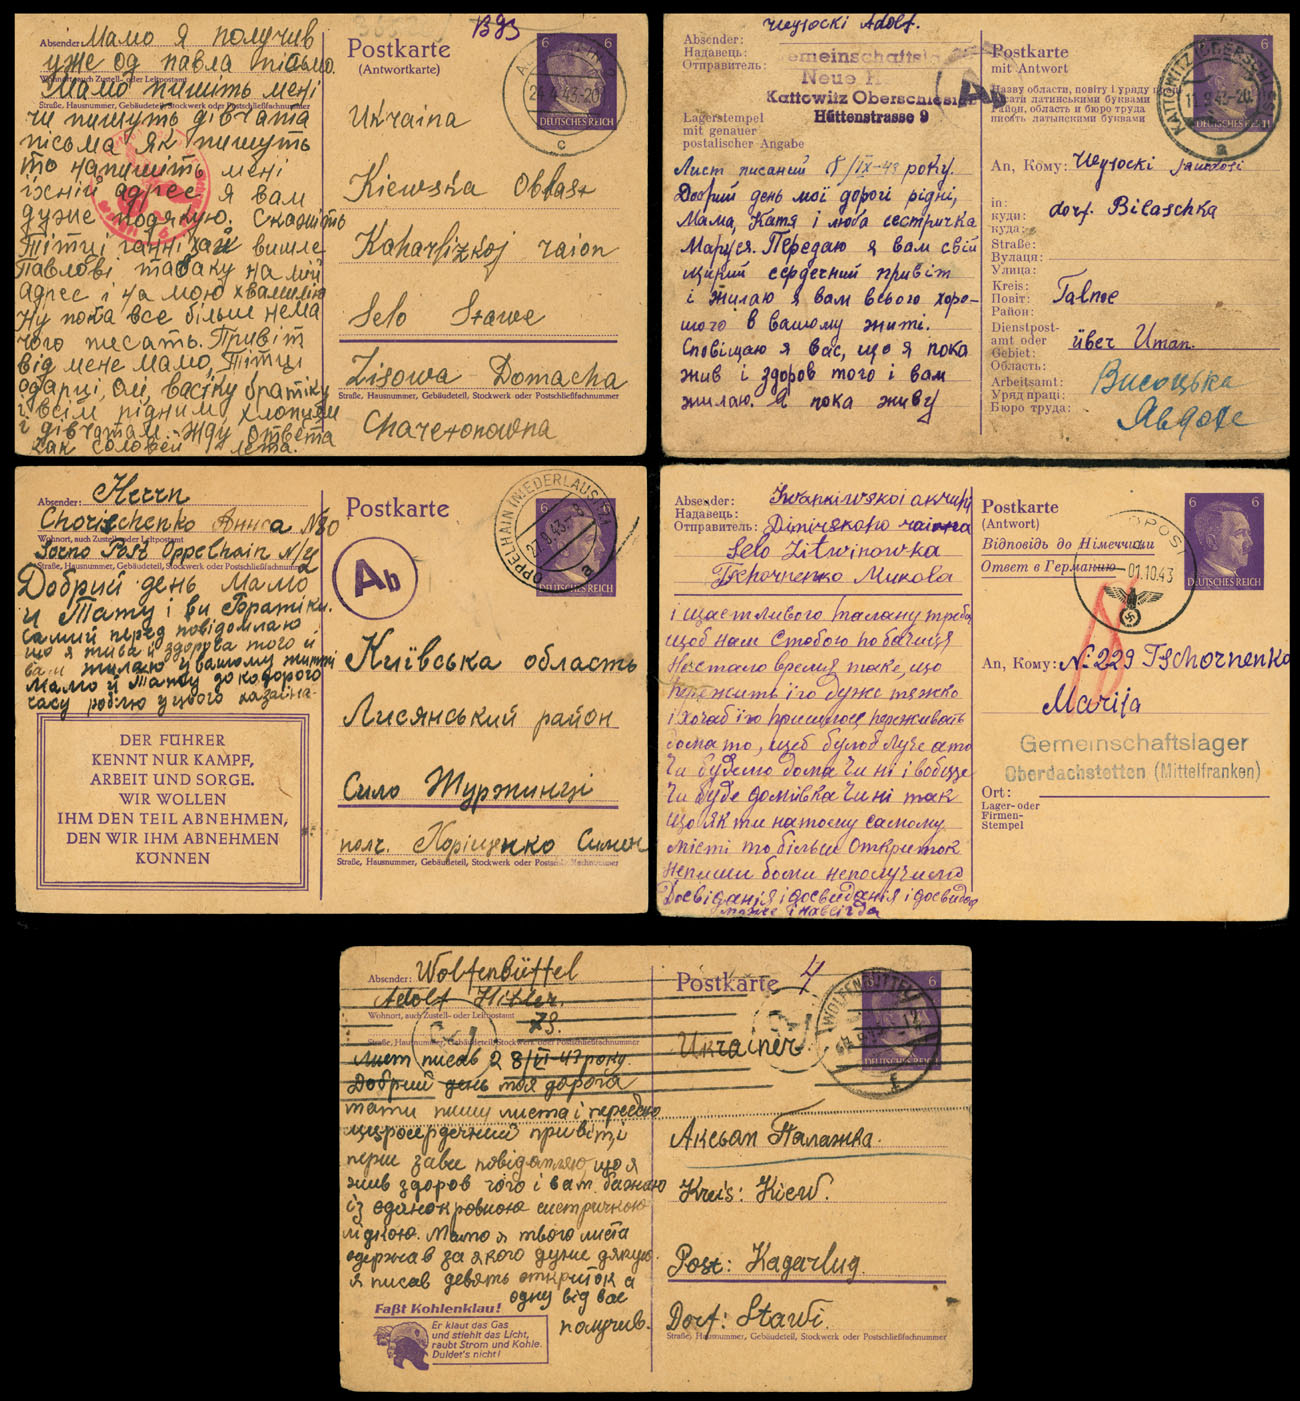 Postkarte
(Antwortkarte)
Absender:
Мамо я получив
уже од павла письмо.
Wohnort, auch Zustell- oder Leitpostamt
Мамо пишить мені
Straße, Hausnummer, Gebäudeteil, Stockwerk oder Postschließfachnummer
чи пишуть дівчата
письма як пишуть
то напишіть мені
їхній адрес я вам
дуже подякую. Скажить
тітці ганні хай вишле
павлові табаку на мой
адрес і на мою хвамилію
ну пока все більше нема
чого писать. Привіт
від мене мамо, тітці
одарці, олі, васіку братіку
і всім рідним хлопцям
і дівчатам. Жду ответа
как соловей лєта.
6 6
24.4.43-20
c
DEUTSCHES REICH
Ukraina
Kiewska Oblast
Kaharlizkoj raion
Selo Stawe
Lisowa Domacha
Straße, Hausnummer, Gebäudeteil, Stockwerk oder Postschließfachnummer
Charetonowna
Wysocki Adolf.
Absender:
Надавець:
Отправитель:
Gemeinschaftslager
Neue H
Kattowitz Oberschlesien
Hüttenstrasse 9
Ab
Lagerstempel
mit genauer
postalischer Angabe
Лист писаний 8/IX-43 року.
Добрий день мої дорогі рідні,
Мама, Катя і люба сестричка
Маруся. Передаю я вам свій
щирий сердечний привіт
і жилаю я вам всього хоро-
шого в вашому житі.
Сповіщаю я вас, що я пока
жив і здоров того і вам
жилаю. Я пока живу
Postkarte
mit Antwort
Назву области, повіту і уряду
писати латинськими буквами
Район, область и бюро труда
писать латынскими буквами
6
KATTOWITZ (OBERSCHLES)
11.9.43-20
a
DEUTSCHES REICH
An, Кому: Wysocki
in:
куди:
куда:
dorf. Bilaschka
Straße:
Вулаця:
Улица:
Kreis:
Повіт:
Район:
Talnoe
Dienstpost-
amt oder
Gebiet:
Область:
über Uman.
Arbeitsamt:
Уряд праці:
Бюро труда:
Висоцька
Явдосе
Absender:
Herrn
Chorischenko Анниса N 80
Wohnort, auch Zustell- oder Leitpostamt
Sorno Post Oppelhain N/L
Straße, Hausnummer, Gebäudeteil, Stockwerk oder Postschließfachnummer
Добрий день Мамо
и Тату і ви братіки.
Самий перед повідомляю
що я жива й здорова того й
вам жилаю у вашому житті
Мамо й Тату до кодорого
часу роблю у цього хазаїна-
DER FÜHRER
KENNT NUR KAMPF,
ARBEIT UND SORGE.
WIR WOLLEN
IHM DEN TEIL ABNEHMEN,
DEN WIR IHM ABNEHMEN
KÖNNEN
Postkarte
Ab
OPPELHAIN (NIEDERLAUSITZ)
27.9.43.-8
a
6 6
DEUTSCHES REICH
Київська область
Лисянський район
Сило Журжинці
полч. Хоріщенко Симен
Straße, Hausnummer, Gebäudeteil, Stockwerk oder Postschließfachnummer
Absender:
Надавець:
Отправитель:
Dimirskoho raiona
Selo Litwinowka
Tschornenko Микола
і щастливого талану треба
щоб нам с тобою побачиця
Настало времия таке, що
пережить іго дуже тяжко
і хочаб іго пришлось переживать
дома то, щоб булоб луче ато
Чи будемо дома чи ні і вобще
Чи буде домівка чи ні так
що як ти на тому самому
місті то більше открыток
непиши боми неполучимо
Досвіданія і досвиданія і досвидан
може і навсігда
Postkarte
(Antwort)
Відповідь до Німеччини
Ответ в Германию
01.10.43
6 6
DEUTSCHES REICH
An, Кому: № 229 Tschornenko
Marija
Gemeinschaftslager
Oberdachstetten (Mittelfranken)
Ort:
Lager- oder
Firmen-
Stempel
Absender: Wolfenbüttel
Adolf Hitler.
Wohnort, auch Zustell- oder Leitpostamt
Straße, Hausnummer, Gebäudeteil, Stockwerk oder Postschließfachnummer
Лист писав 28/VI-43 року
Добрий день моя дорога
мати пишу листа і передаю
щиросердечний привіт, і
перш завсе повідомляю, що я
жив здоров чого і вам бажаю
із одинокровною систричкою
лідкою. Мамо я твого листа
одержав за якого дуже дякую.
я писав девять открыток а
одну від вас
получив.
Faßt Kohlenklau!
Er klaut das Gas
und stiehlt das Licht,
raubt Strom und Kohle.
Duldet's nicht!
Postkarte
4
WOLFENBÜTTEL
6
DEUTSCHES REICH
Ukrainer.
Аксьон Палажка.
Kreis: Kiew.
Post: Kagarlug.
Dorf: Stawi.
Straße, Hausnummer, Gebäudeteil, Stockwerk oder Postschließfachnummer